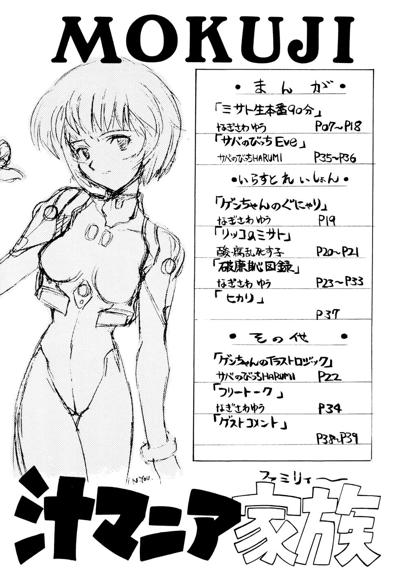 MOKUJI
・まんが・
「ミサト生本番90分」
なぎさわゆう P07~P18
「サバのびっちEve」
サバのびっちHARUMI P35~P36
・いらすとれいしょん・
「ゲンちゃんのぐにゃり」
なぎさわゆう P19
「リッコのミサト」
P20~P21
なぎさわゆう P23~P33
「ヒカリ」
P37
・その他・
「ゲンちゃんのイラストロジック」
サバのびっちHARUMI P22
「フリートーク」
なぎさわゆう P34
「ゲストコメント」
P38~P39
ファミリィー
汁マニア家族